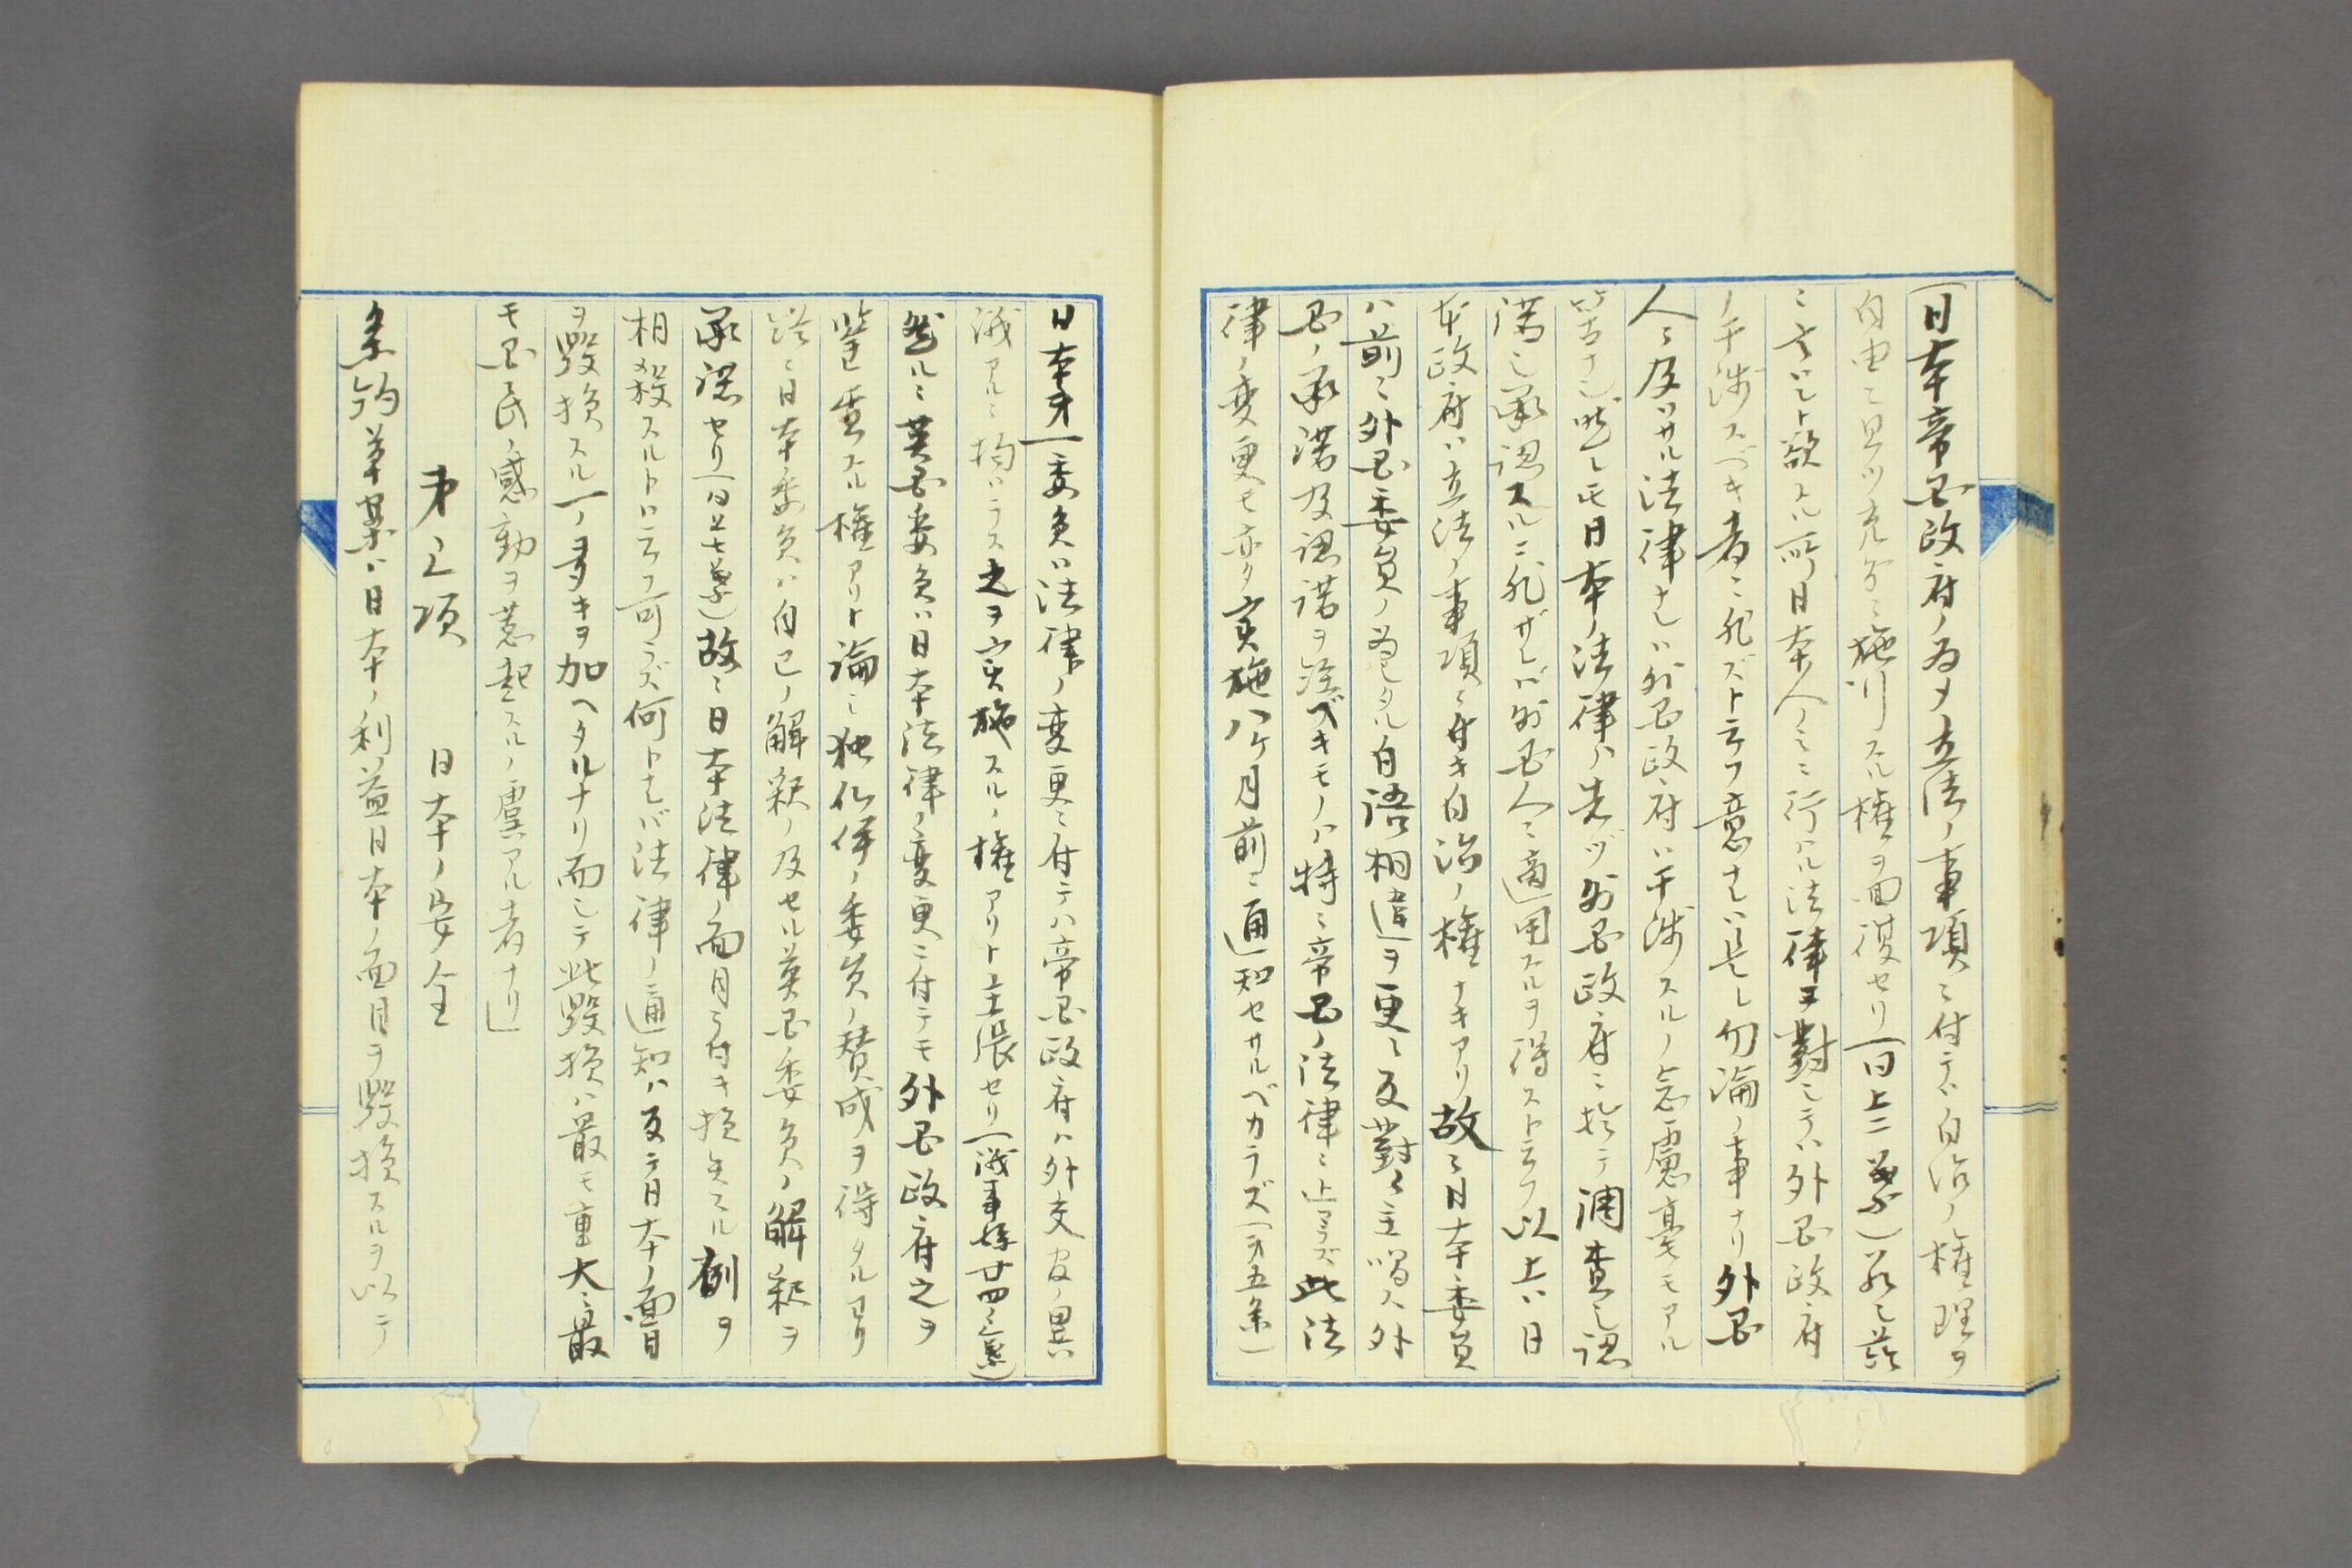 (日本帝国政府ノ為メ立法ノ事項ニ付テハ自治ノ権理ヲ
自由ニ且ツ充分ニ施行スル権ヲ回復セリ(同上二葉)若シ茲
ニ云ハント欲スル所日本人ニミ行ハル法律ヲ對シテハ外国政府
ノ干渉スベキ者ニ非ズト云フ意ナレハ是レ勿論ノ事ナリ外国
人ニ及ハサル法律ナレハ外国政府ハ干渉スルノ念慮毫モアル
筈ナシ然レ𪜈日本ノ法律ハ先ヅ外国政府ニ於テ調査シ認
諾シ承認スルニ非ザレバ外国人ニ適用スルヲ得ストテフ以上ハ日
本政府ハ立法ノ事項ニ付キ自治ノ権ナキアリ故ニ日本委員
ハ前ニ外国委員ノ為シタル自語相違ヲ更ニ反對ニ主唱ス外
国ノ承諾及認諾ヲ経ベキモノハ特ニ帝国ノ法律ニ止マラズ此法
律ノ変更モ亦タ実施八ケ月前ニ通知セサルベカラズ(第五条)
日本第一委員ハ法律ノ変更ニ付テハ帝国政府ハ外交官ノ異
議アルニ拘ハラス之ヲ実施スルノ権アリト主張セリ(議事録廿四ノ三葉)
然ルニ英国委員ハ日本法律ノ変更ニ付テモ外国政府之ヲ
監査スル権アリト論シ独仏伊ノ委員ノ賛成ヲ得タルヨリ
終ニ日本委員ハ自己ノ解釈ノ及セル英国委員ノ解釈ヲ
承認セリ(同上七葉)故ニ日本法律ノ面目ニ付キ損失スル割ヲ
相殺スルトハ云フ可ラズ何トナレバ法律ノ通知ハ反テ日本ノ面目
ヲ毀損スルノ多キヲ加ヘタルナリ而シテ此毀損ハ最モ重大ニ最
モ国民ノ感動ヲ惹起スルノ虞アル者ナリ」
第三項　日本ノ安全
条約草案ハ日本ノ利益日本ノ面目ヲ毀損スルヲ以テ